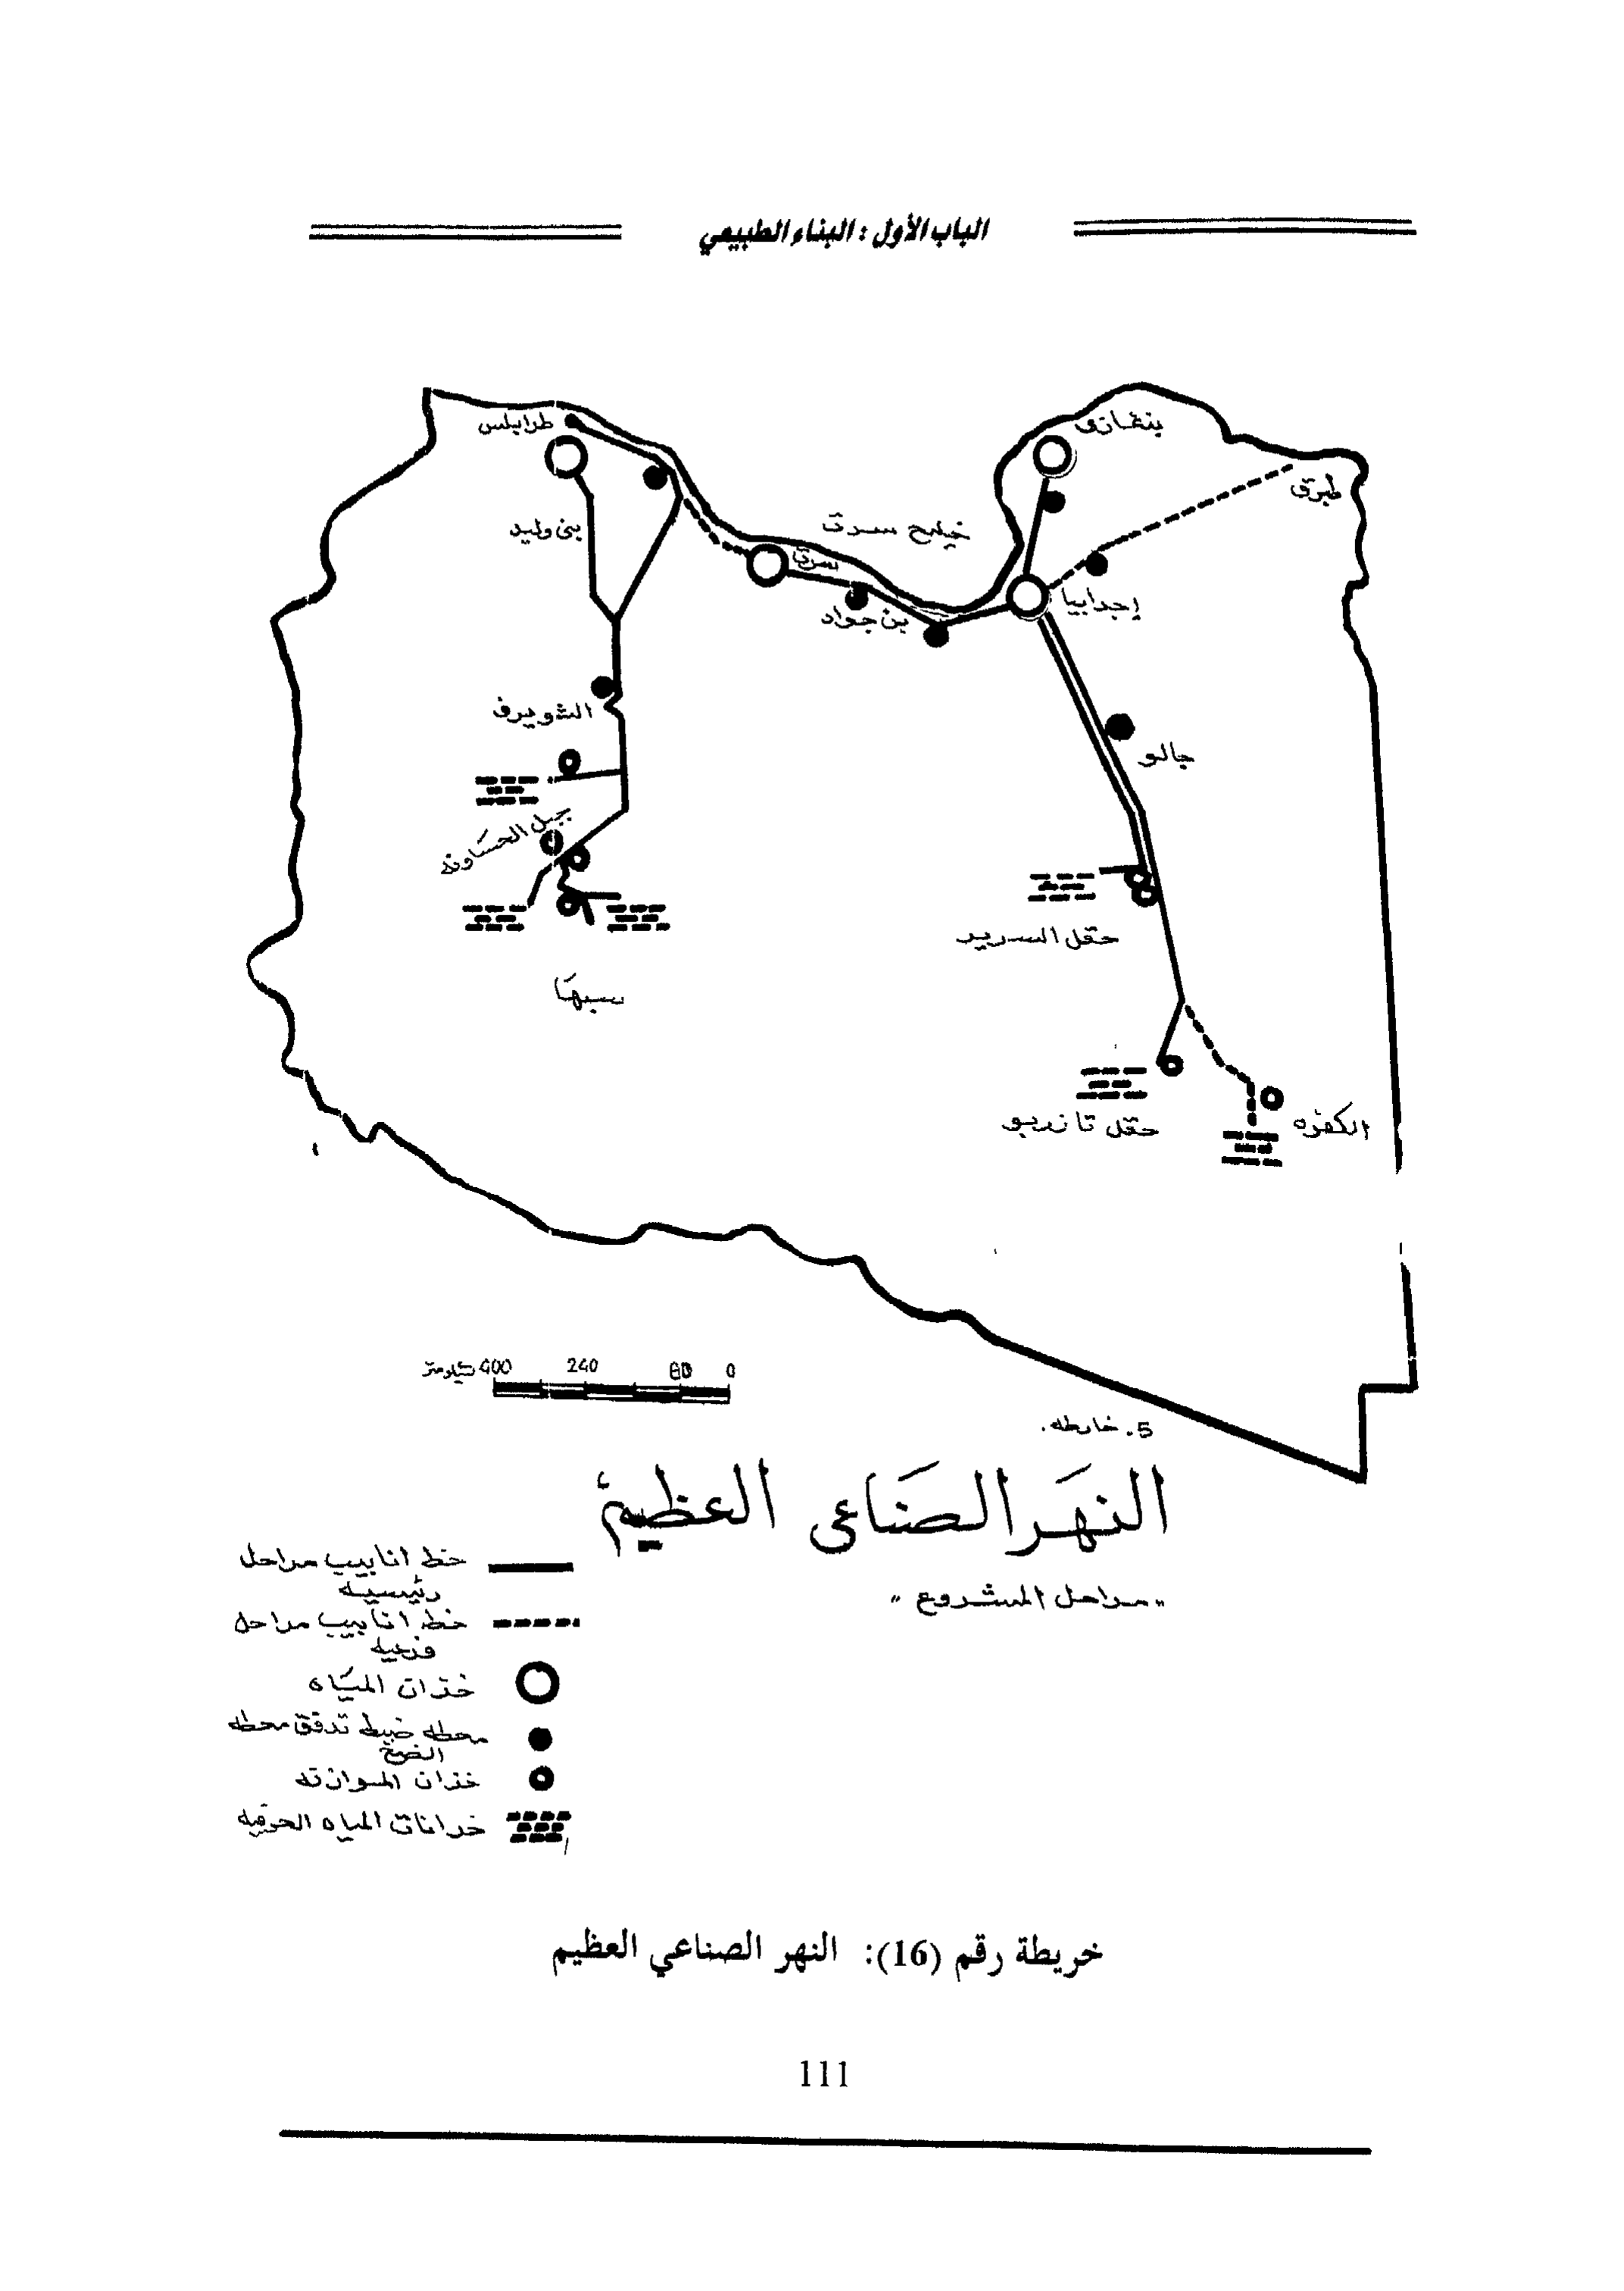 الباب الأول : البناء الطبيعي
طرابلس
بنغازى
طبرق
بنى وليد
خليج سرت
سرت
إجدابيا
بن جواد
الشويرف
جالو
جبل الحساونه
حقل السرير
سبها
حقل تازربو
الكفره
0 80 240 400 كيلومتر
5. خارطه.
النهر الصناعى العظيم
"مراحل المشروع"
خط انابيب مراحل
رئيسيه
خط انابيب مراحل
فرعيه
خزان المياه
محطه ضبط تدفق محطه
الضخ
خزان الموازنه
خزانات المياه الجوفيه
خريطة رقم (16): النهر الصناعي العظيم
111